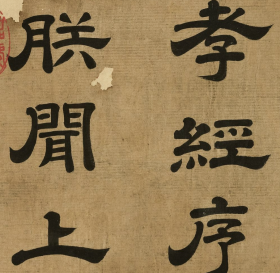 孝經序
朕聞上